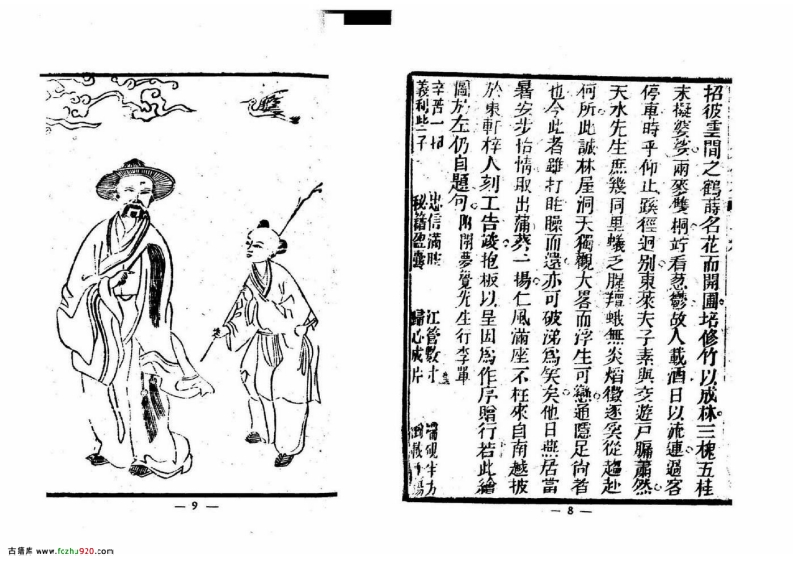 招彼雲間之鶴蒔名花而開圃培修竹以成林三槐五桂
末擬婆娑兩麥雙桐竚看蔥鬱故人載酒日以流連過客
停車時乎仰止蹊徑迥别東萊夫子素與交遊戸牖蕭然
天水先生庶幾同里蟻之腥羶蛾無炎焰徵逐奚從趨赴
何所此誠林屋洞天獨觀大畧而浮生可戀通隱足尚者
也今此者雖打睢臊而遠亦可破涕為笑矣他日燕居當
暑安步怡情取出蒲葵一揚仁風滿座不枉來自南越披
於東軒梓人刻工告竣抱板以呈因為作序贈行若此繪
圖於左仍自題句
開夢覺先生行李單
辛苦一担 忠信滿 江管數寸 端硯半方
義利些子 秘籍盈囊 歸心成片
— 8 —
— 9 —
古籍库 www.fczhu920.com